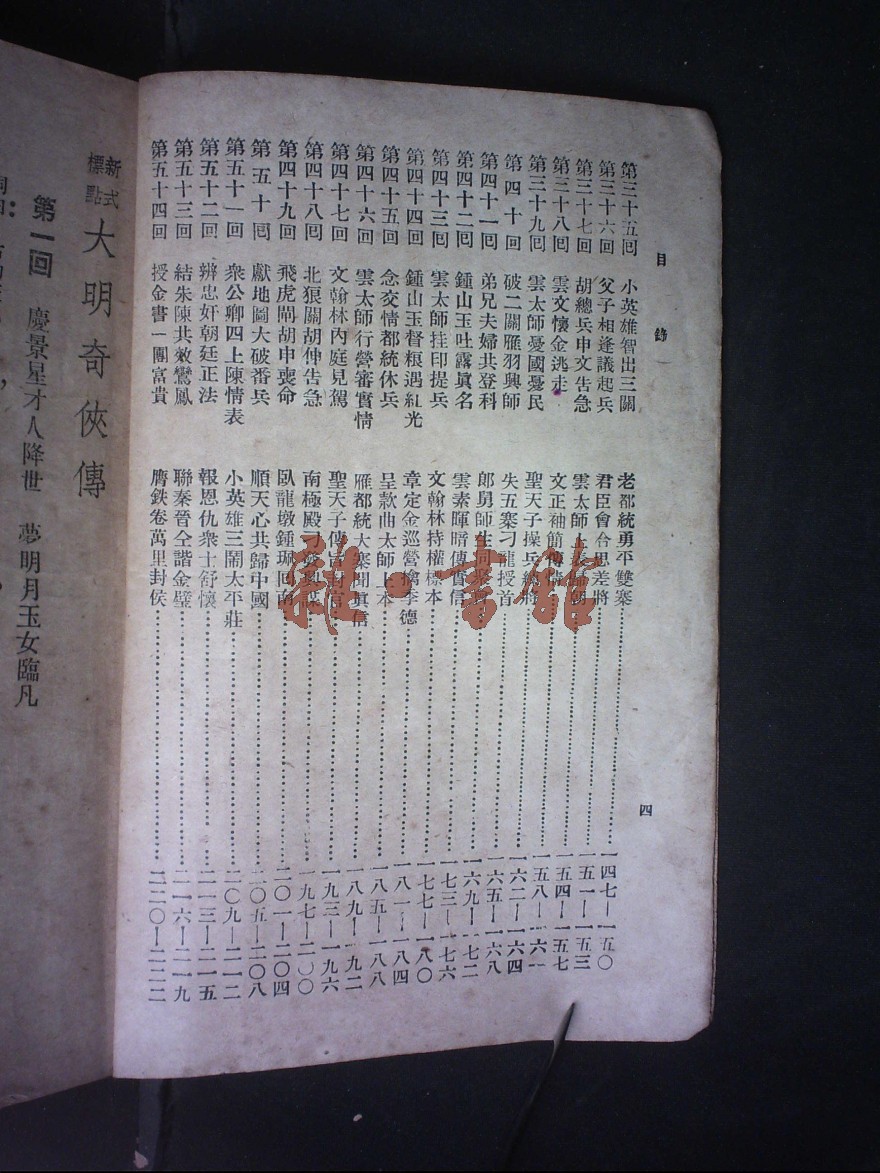 目錄
四
第三十五囘 小英雄智出三關 老都統勇平雙寨 一四七—一五〇
第三十六囘 父子相逢議起兵 君臣會合思差將 一五一—一五三
第三十七囘 胡總兵申文告急 雲太師上表 一五四—一五七
第三十八囘 雲文懷金逃走 文正袖簡 一五八—一六一
第三十九囘 雲太師憂國憂民 聖天子操兵練將 一六二—一六四
第四十囘 破二關雁羽興師 失五寨刁龍授首 一六五—一六八
第四十一囘 弟兄夫婦共登科 郎舅師生 一六九—一七二
第四十二囘 鍾山玉吐露眞名 雲素暉暗傳實信 一七三—一七六
第四十三囘 雲太師挂印提兵 文翰林持權標本 一七七—一八〇
第四十四囘 鍾山玉督粮遇紅光 章定金巡營擒李德 一八一—一八四
第四十五囘 念交情都統休兵 呈款曲太師上本 一八五—一八八
第四十六囘 雲太師行營審實情 雁都統大寨聞眞信 一八九—一九二
第四十七囘 文翰林內庭見駕 聖天子傳旨封官 一九三—一九六
第四十八囘 北狼關胡伸告急 南極殿刁發 一九七—二〇〇
第四十九囘 飛虎閘胡申喪命 臥龍墩鍾珮囘南 二〇一—二〇四
第五十囘 獻地圖大破番兵 順天心共歸中國 二〇五—二〇八
第五十一囘 衆公卿四上陳情表 小英雄三鬧太平莊 二〇九—二一二
第五十二囘 辨忠奸朝廷正法 報恩仇衆士舒懷 二一三—二一五
第五十三囘 結朱陳共效鸞鳳 聯秦晉全諧金璧 二一六—二一九
第五十四囘 授金書一團富貴 膺鉄卷萬里封侯 二二〇—二二二
雜·書館
新式標點 大明奇俠傳
第一囘 慶景星才人降世 夢明月玉女臨凡